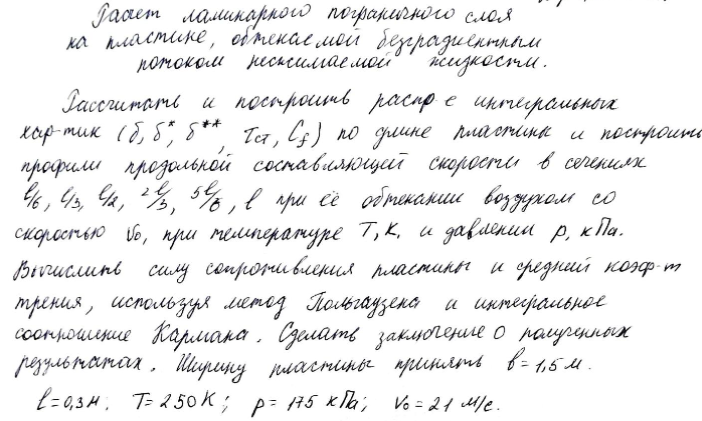 Расчет ламинарного пограничного слоя
на пластине, обтекаемой безградиентным
потоком несжимаемой жидкости.
Рассчитать и построить распр-е интегральных
хар-тик (δ, δ*, δ**, τст, Cf) по длине пластины и построить
профили продольной составляющей скорости в сечениях
l/6, l/3, l/2, 2l/3, 5l/6, l при её обтекании воздухом со
скоростью V₀, при температуре T, К, и давлении p, кПа.
Вычислить силу сопротивления пластины и средний коэф-т
трения, используя метод Польгаузена и интегральное
соотношение Кармана. Сделать заключение о полученных
результатах. Ширину пластины принять b = 1,5 м.
l = 0,3 м; T = 250 К; p = 175 кПа; V₀ = 21 м/с.